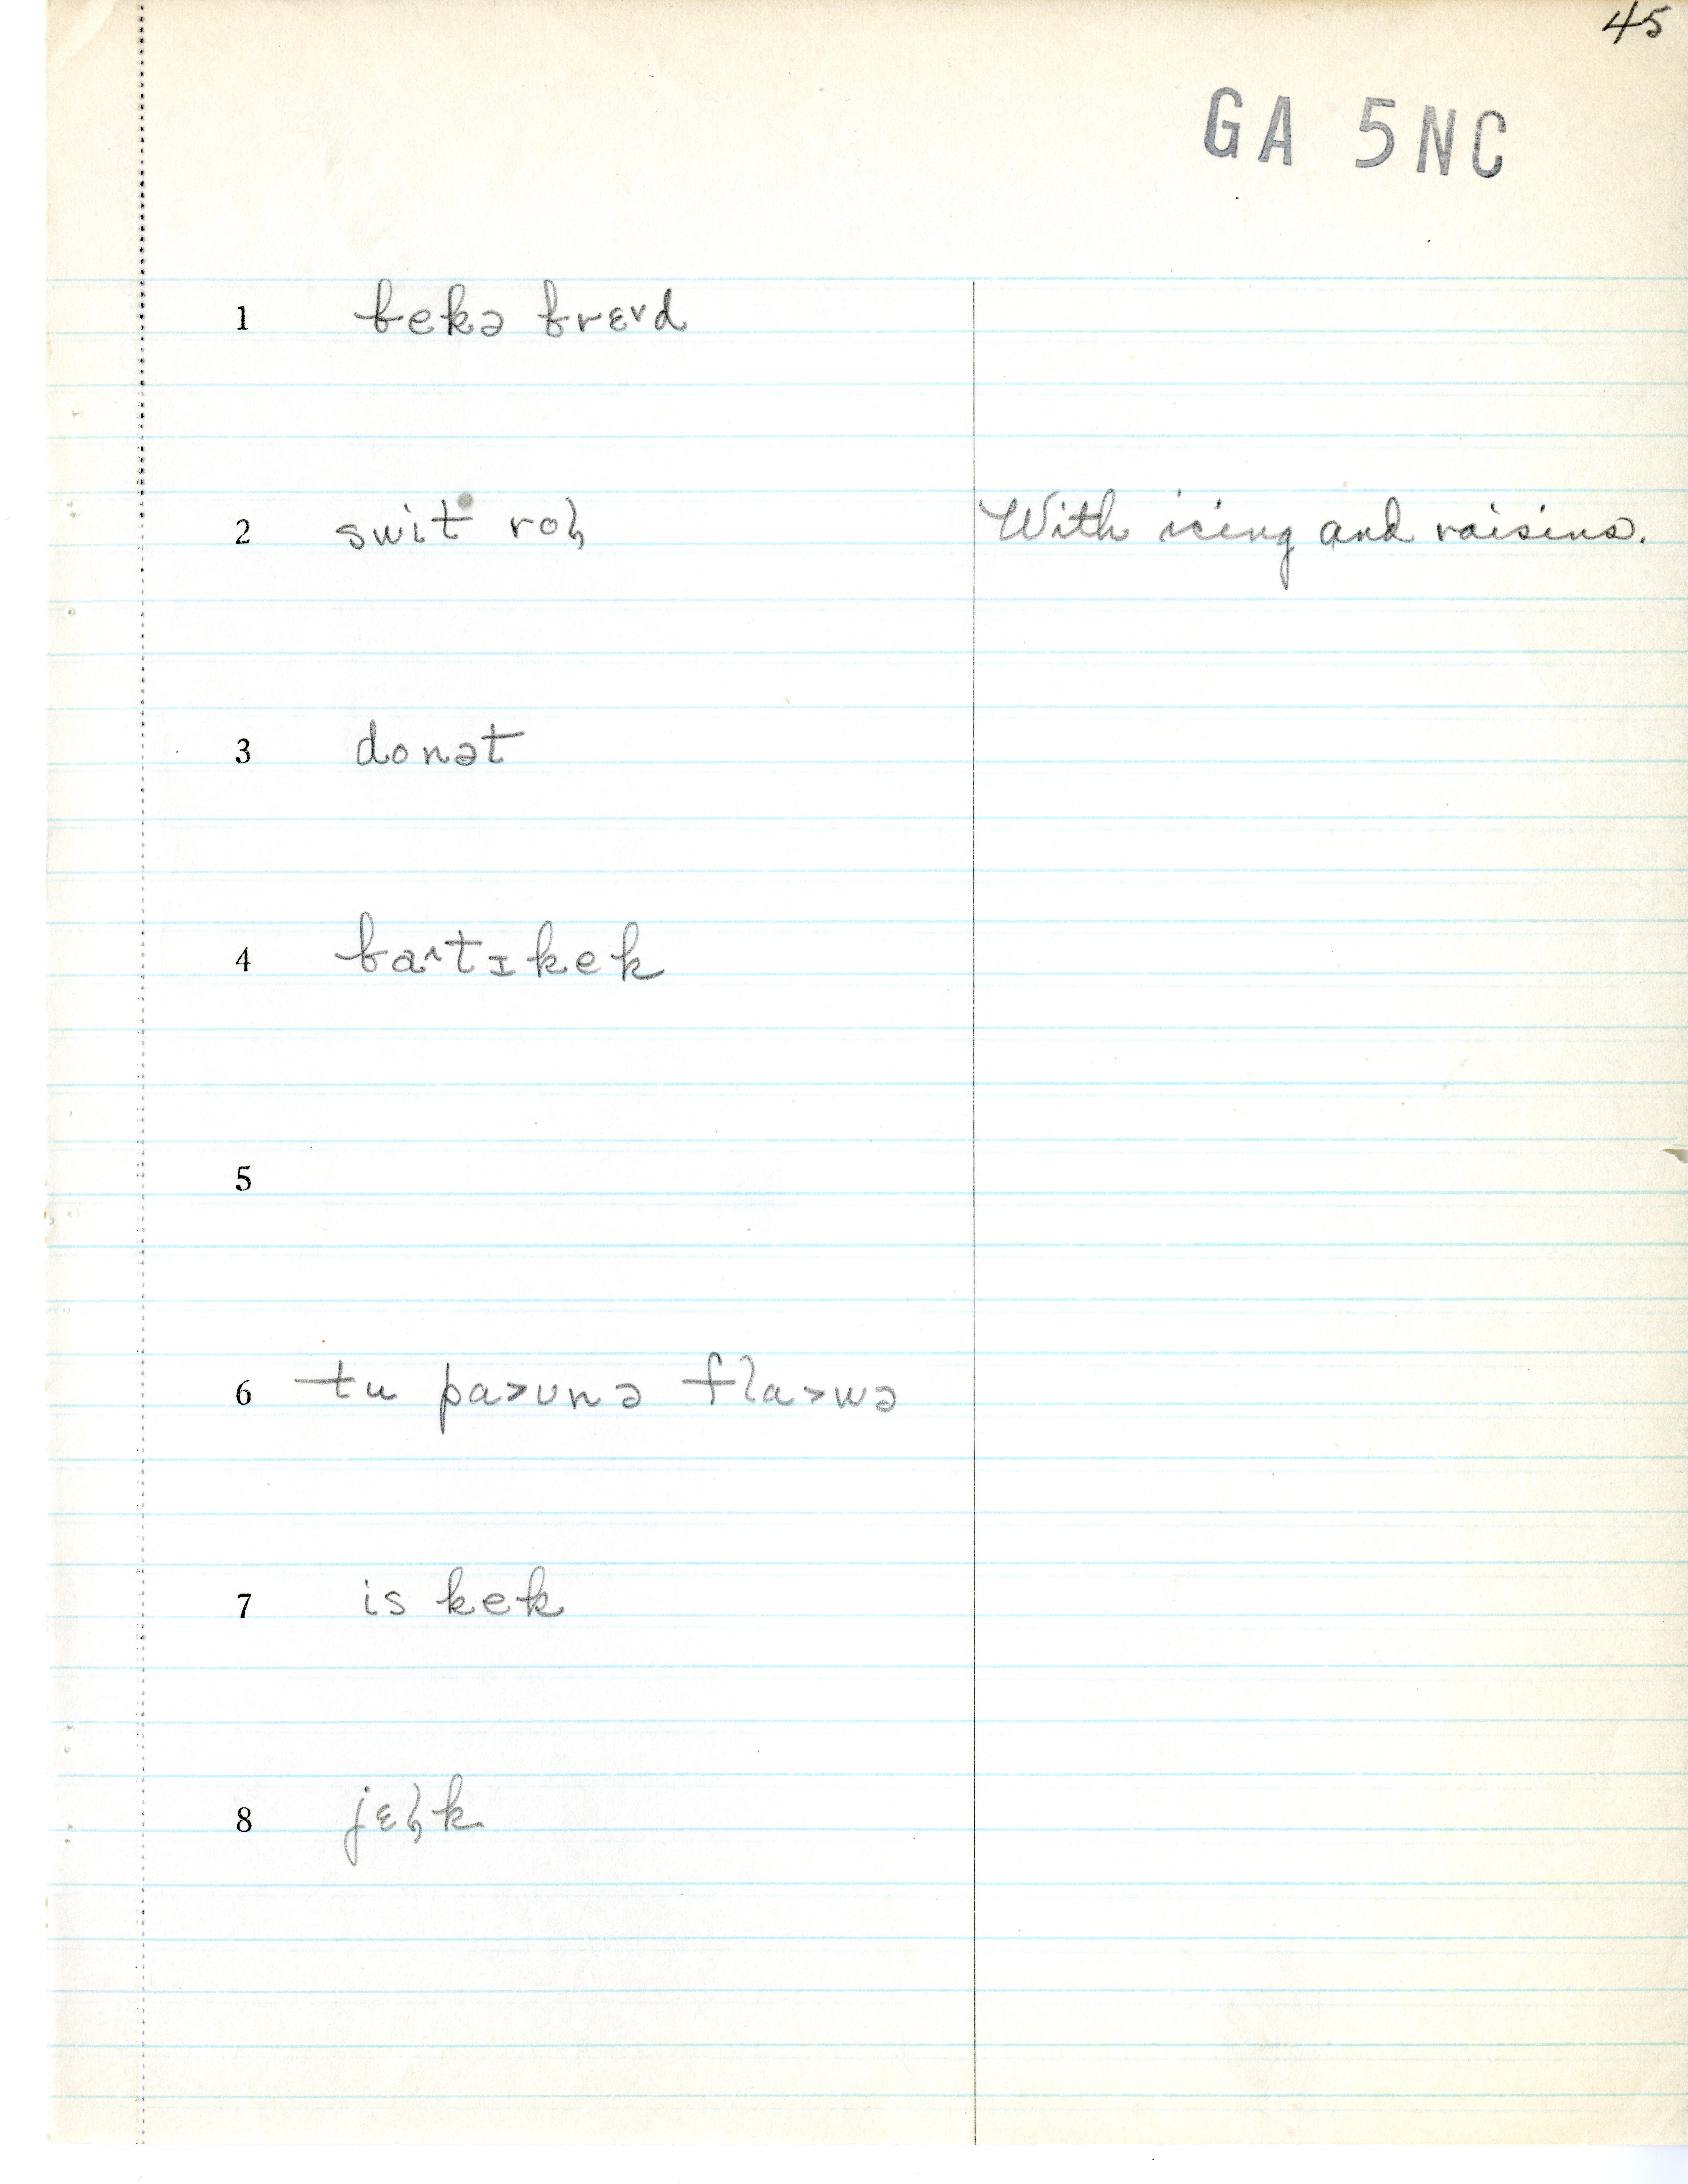 45
GA 5NC
1 bekə brɛ˅d
2 swit roɫ̡ With icing and raisins.
3 donət
4 ba˄tɪkek
5
6 tu pa˃ʊnə fla˃wə
7 is kek
8 jɛɫ̡k